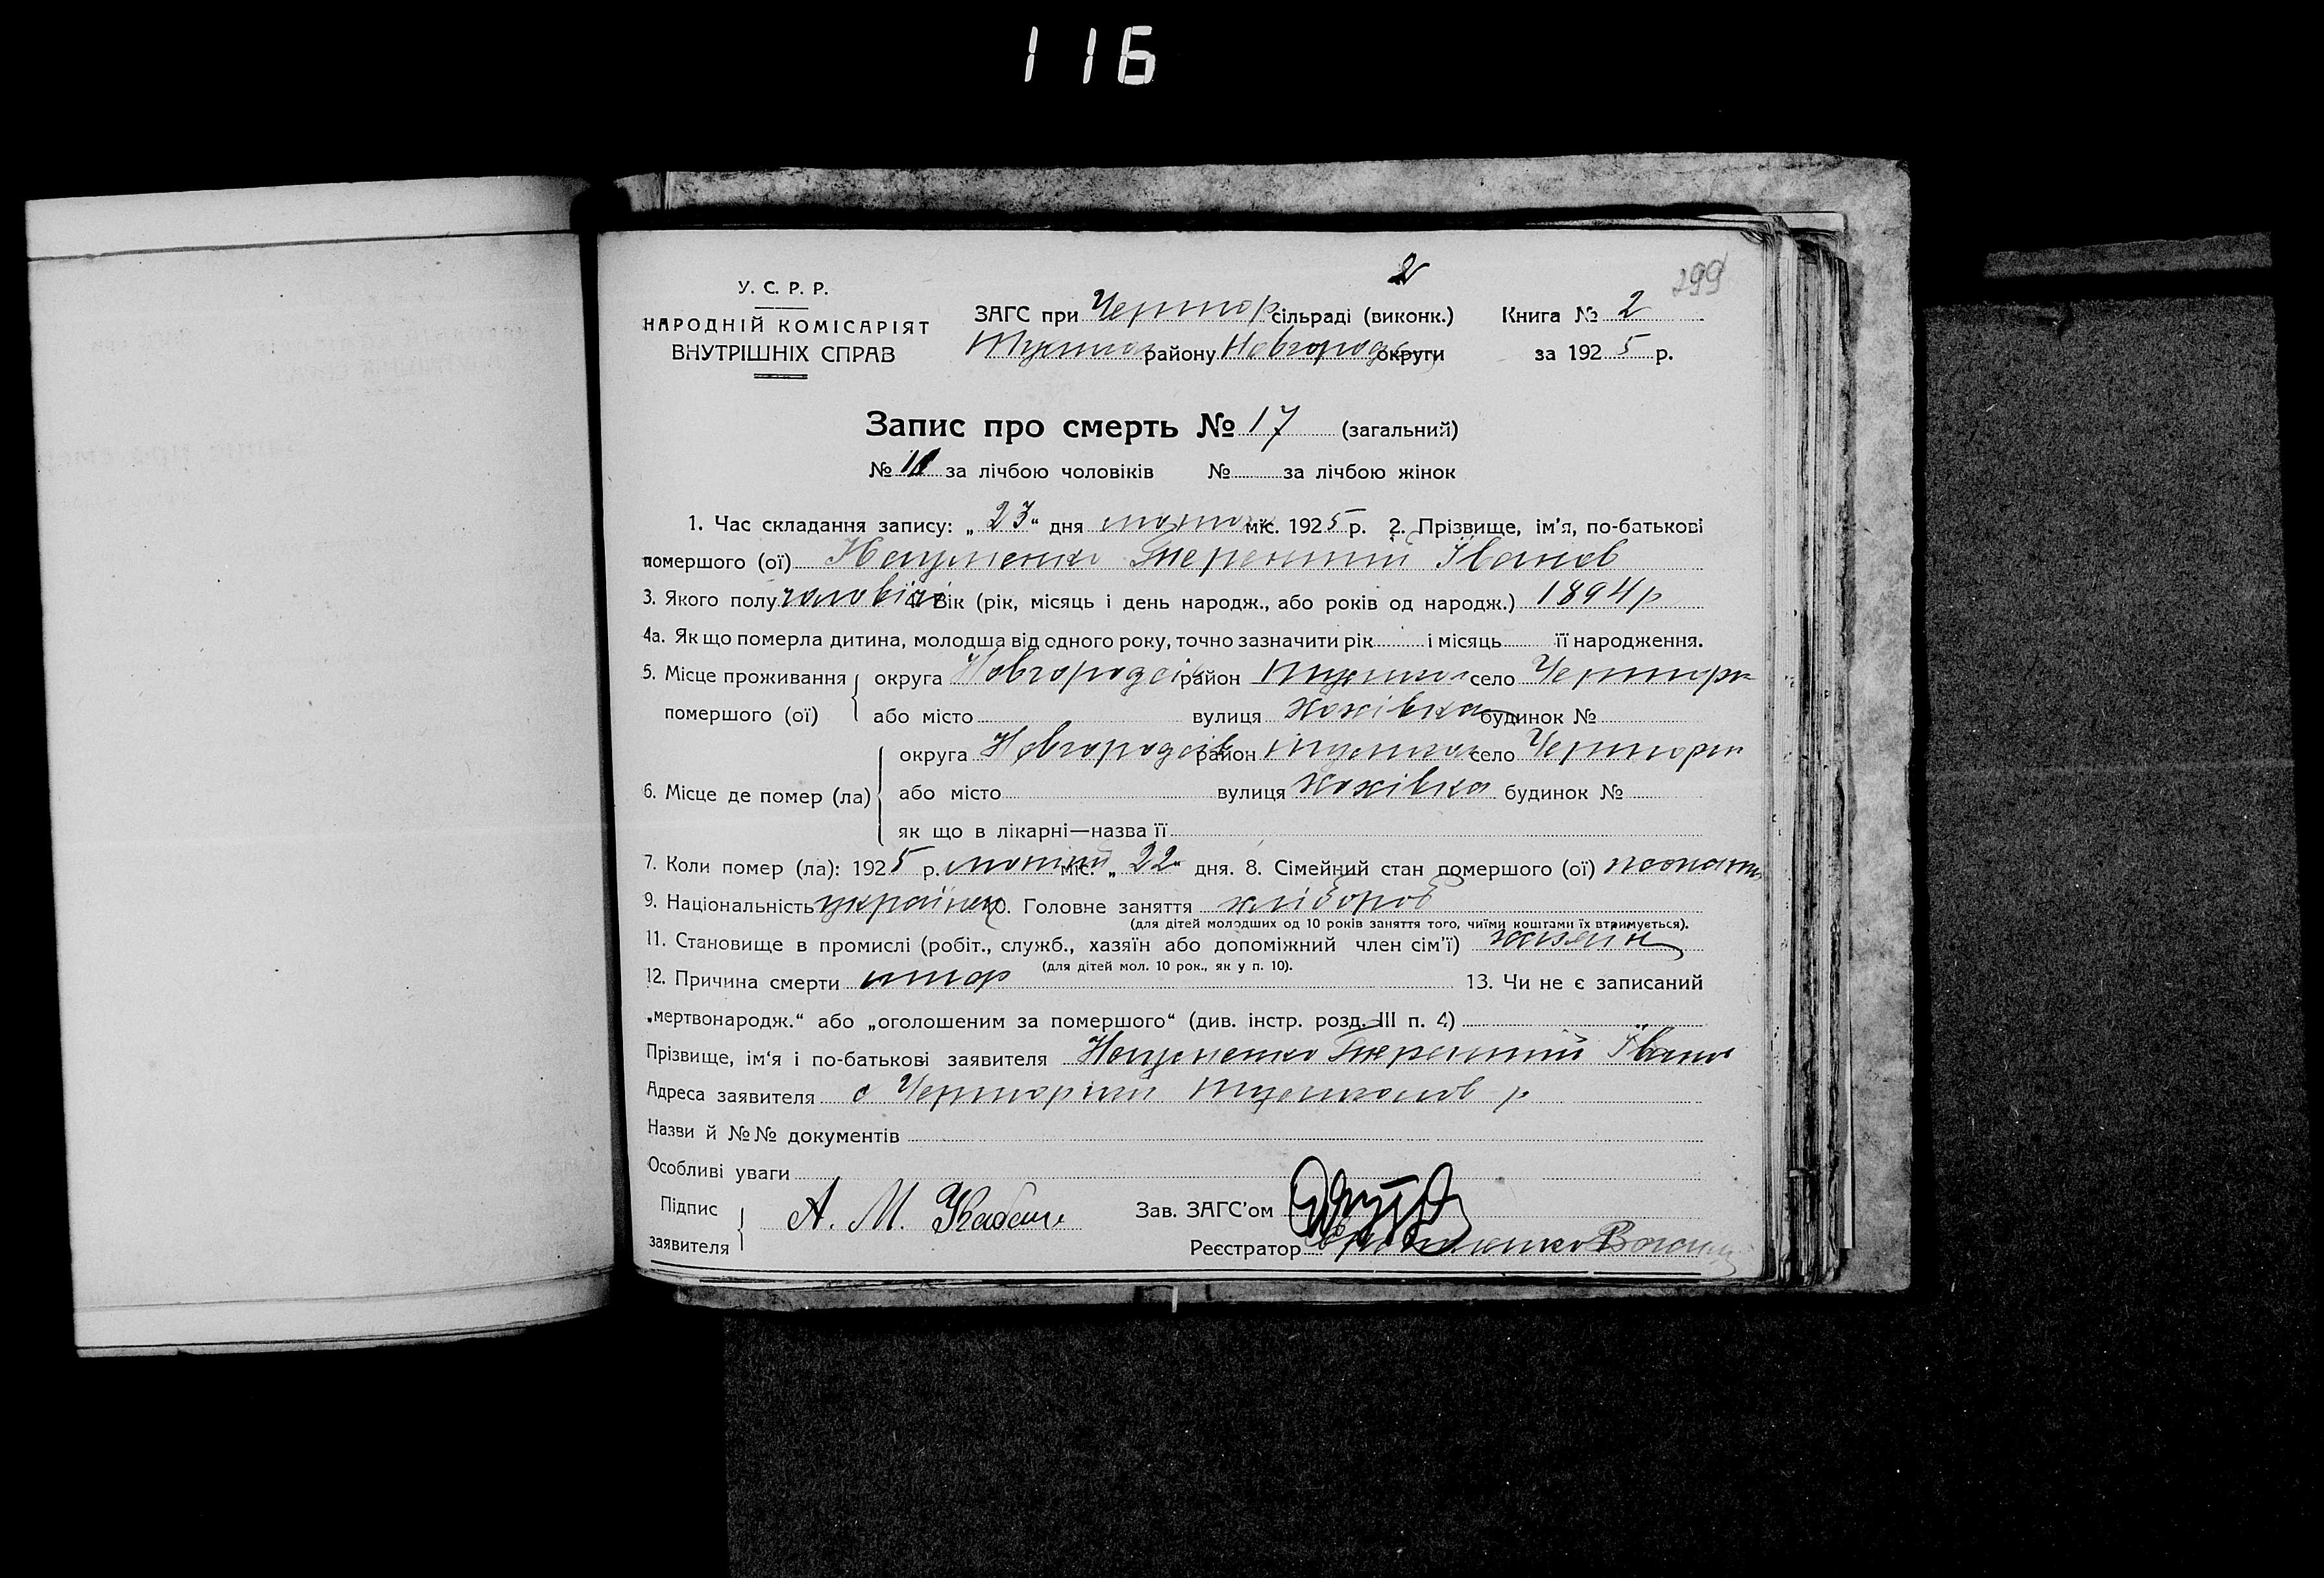 116
2
299
У. С. Р. Р.
НАРОДНІЙ КОМІСАРІЯТ
ВНУТРІШНІХ СПРАВ
ЗАГС при Чертор сільраді (виконк.) Книга № 2
району Новгородс округи за 1925 р.
Запис про смерть № 17 (загальний)
№ за лічбою чоловіків № за лічбою жінок
1. Час складання запису: „23“ дня лютого міс. 1925 р. 2. Прізвище, ім'я, по-батькові
помершого (ої) Науменко Терентий Іванов
3. Якого полу чоловічо 4. Вік (рік, місяць і день народж., або років од народж.) 1894 р
4а. Як що померла дитина, молодша від одного року, точно зазначити рік і місяць її народження.
5. Місце проживання округа Новгородсів район село Чертори
помершого (ої) або місто вулиця будинок №
округа Новгородсів район село Чертори
6. Місце де помер (ла) або місто вулиця будинок №
як що в лікарні—назва її
7. Коли помер (ла): 1925 р. лютий міс. „22“ дня. 8. Сімейний стан помершого (ої) жонати
9. Національність українец 10. Головне заняття хлібороб
(для дітей молодших од 10 років заняття того, чиїми коштами їх втримується).
11. Становище в промислі (робіт., служб., хазяїн або допоміжний член сім'ї) хазяїн
(для дітей мол. 10 рок., як у п. 10).
12. Причина смерти 13. Чи не є записаний
„мертвонародж.“ або „оголошеним за помершого“ (див. інстр. розд. III п. 4)
Прізвище, ім'я і по-батькові заявителя Науменко Терентий Івано
Адреса заявителя с р
Назви й №№ документів
Особливі уваги
Підпис
заявителя А. М. Зав. ЗАГС'ом
Реєстратор